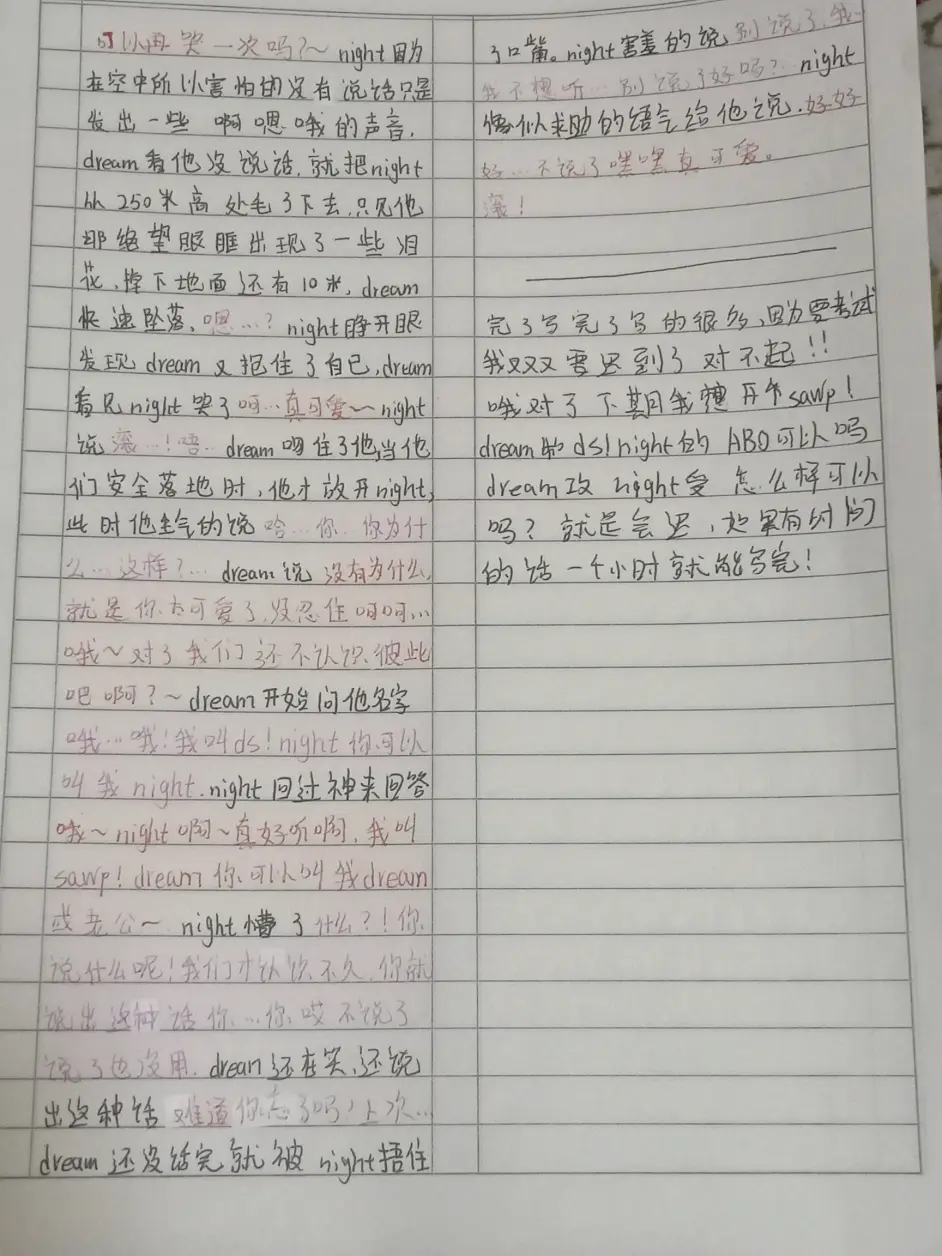 可以再哭一次吗?~ night因为
在空中所以害怕的没有说话只是
发出一些 啊嗯哦的声音,
dream看他没说话,就把night
从250米高处毛了下去,只见他
那绝望眼眶出现了一些泪
花,掉下地面还有10米,dream
快速坠落,嗯…? night睁开眼
发现dream又抱住了自己,dream
看见night哭了呵…真可爱~night
说滚…!唔…dream吻住了他,当他
们安全落地时,他才放开night,
此时他生气的说 哈…你…你为什
么…这样?… dream说 没有为什么,
就是你太可爱了,没忍住呵呵…
哦~对了我们还不认识彼此
吧啊?~dream开始问他名字
哦…哦!我叫ds!night你可以
叫我night.night回过神来回答
哦~night啊~真好听啊,我叫
sawp!dream你可以叫我dream
或老公~ night懵了什么?!你
说什么呢!我们才认识不久,你就
说出这种话你…你哎不说了
说了也没用. dream还在笑,还说
出这种话 难道你忘了吗?上次…
dream还没话完就被night捂住
了口嘴。night害羞的说 别说了,我
我不想听…别说了好吗?. night
像似求助的语气给他说.好好
好…不说了嘿嘿真可爱。
滚!
完了写完了写的很多,因为要考试
我双双要迟到了对不起!!
哦对了下期我想开个sawp!
dream和ds!night的ABO可以吗
dream攻 night受 怎么样可以
吗? 就是会迟,如果有时间
的话一个小时就能写完!